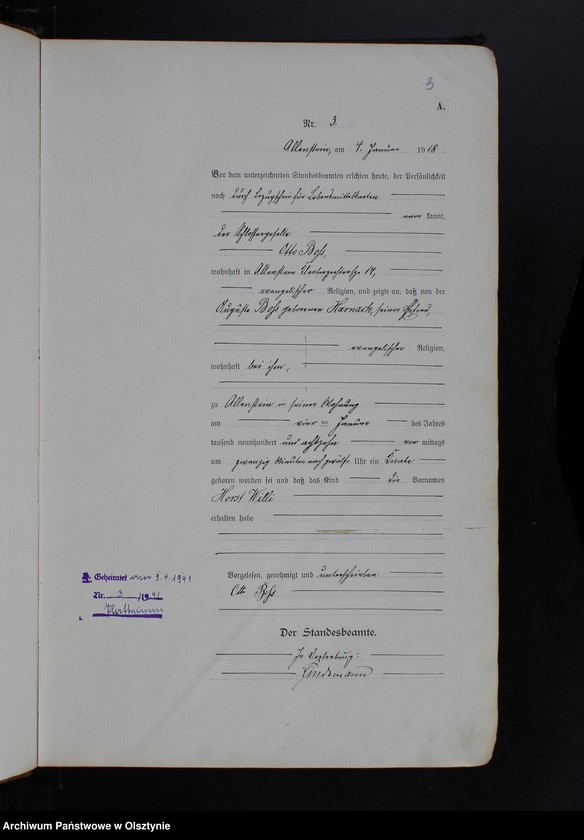 3
A.
Nr. 3.
Allenstein, am 4. Januar 1918
Vor dem unterzeichneten Standesbeamten erschien heute, der Persönlichkeit
nach durch Bezugschein für Lebensmittelkarten
aner kannt,
der Schlossergeselle
Otto Boss,
wohnhaft in Allenstein 14,
evangelischer Religion, und zeigte an, daß von der
Auguste Boss geborenen Harnack, seiner Ehefrau,
evangelischer Religion,
wohnhaft bei ihm,
zu Allenstein in seiner Wohnung
am vier ten Januar des Jahres
tausend neunhundert und achtzehn vor mittags
um zwanzig Minuten nach zwölf Uhr ein Knabe
geboren worden sei und daß das Kind die Vornamen
Horst Willi
erhalten habe.
Vorgelesen, genehmigt und unterschrieben
Otto Boss
Der Standesbeamte.
In Vertretung:
Lindemann
Geheiratet am 3.4.1941
Nr. 3 /1941
Archiwum Państwowe w Olsztynie